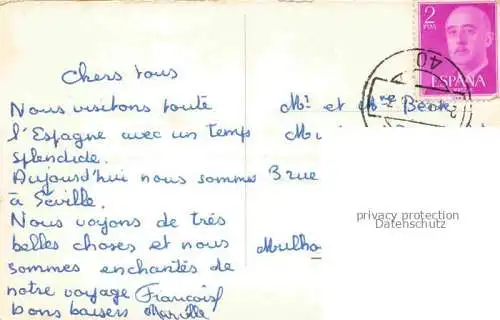 2
PTA
ESPAÑA
40
Chers tous
Nous visitons toute
l'Espagne avec un temps
splendide.
Aujourd'hui nous sommes
à Séville.
Nous voyons de très
belles choses et nous
sommes enchantés de
notre voyage
bons baisers
Mr et Mme
3 rue
Mulho
privacy protection
Datenschutz